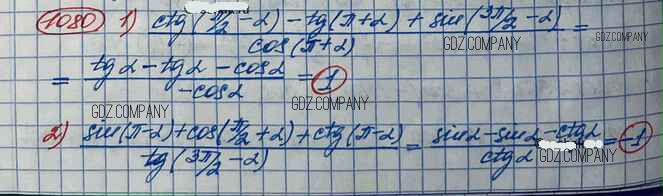 1080 1) (ctg(π/2 - α) - tg(π+α) + sin(3π/2 - α)) / cos(π+α) =
GDZ.COMPANY GDZ.COMPANY
= (tgα - tgα - cosα) / (-cosα) = 1
GDZ.COMPANY GDZ.COMPANY
2) (sin(π-α) + cos(π/2 + α) + ctg(π-α)) / tg(3π/2 - α) = (sinα - sinα - ctgα) / ctgα = -1
GDZ.COMPANY GDZ.COMPANY